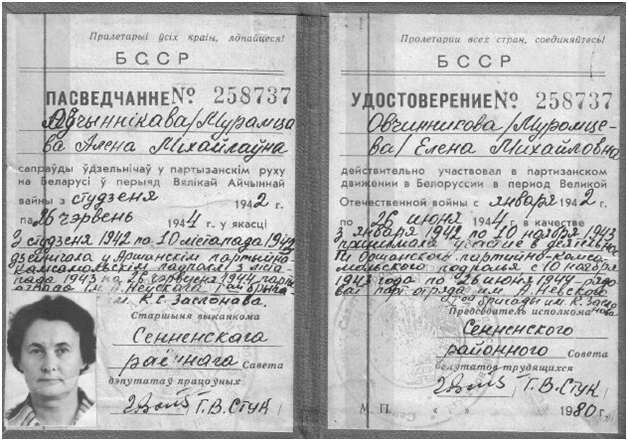 Пралетарыі ўсіх краін, яднайцеся!
БССР
ПАСВЕДЧАННЕ № 258737
Аўчыннікава/Мурамца
ва Алена Міхайлаўна
сапраўды ўдзельнічаў у партызанскім руху
на Беларусі ў перыяд Вялікай Айчыннай
вайны з студзеня 1942 г.
па 26 чэрвень 1944 г. у якасці
З студзеня 1942 по 10 лістапада 1943
дзейнічала у Аршанскім партыйна
камсамольскім падполлі з ліста
пада 1943 па 26 чэрвеня 1944
атрада ім. А. Неўскага
ім. К.С. Заслонава.
Старшыня выканкома
Сенненскага
раённага Савета
дэпутатаў працоўных
Т.В. Стук
Пролетарии всех стран, соединяйтесь!
БССР
УДОСТОВЕРЕНИЕ № 258737
Овчинникова/Муромце-
ва/ Елена Михайловна
действительно участвовал в партизанском
движении в Белоруссии в период Великой
Отечественной войны с января 1942 г.
по 26 июня 1944 г. в качестве
з января 1942 по 10 ноября 1943
принимала участие в
Оршанского партийно-комсо-
мольского подполья с 10 ноября
1943 года по 26 июня 1944-рядо
вой парт. отряда им. А. Невского
бригады им. К. Засло
нова
Председатель исполкома
Сенненского
районного Совета
депутатов трудящихся
Т.В. Стук
М. П. « » 1980 г.